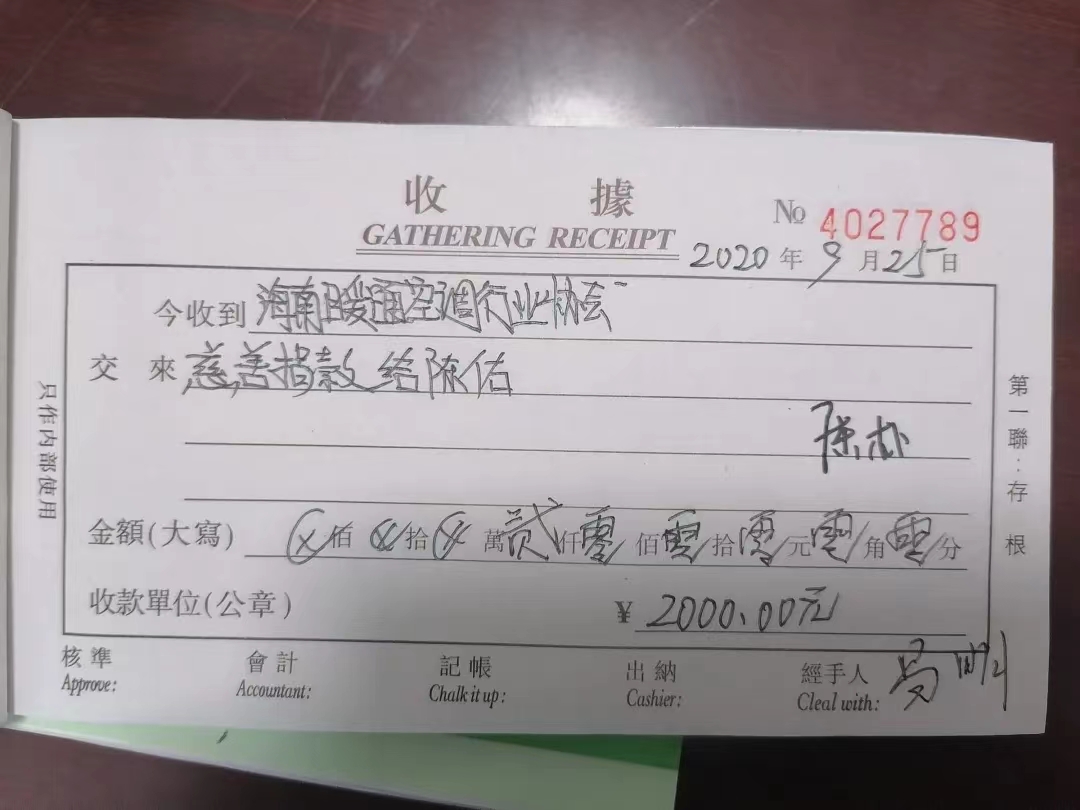 收 據
GATHERING RECEIPT
No 4027789
2020 年 9 月 25 日
今收到 海南暖通空调行业协会
交 來 慈善捐款给陈佑
陈
金額(大寫) ⊗佰⊗拾⊗萬贰仟零佰零拾零元零角零分
收款單位(公章) ¥ 2000.00元
核準 會計 記帳 出納 經手人
Approve: Accountant: Chalk it up: Cashier: Cleal with:
只作内部使用
第一聯:存根